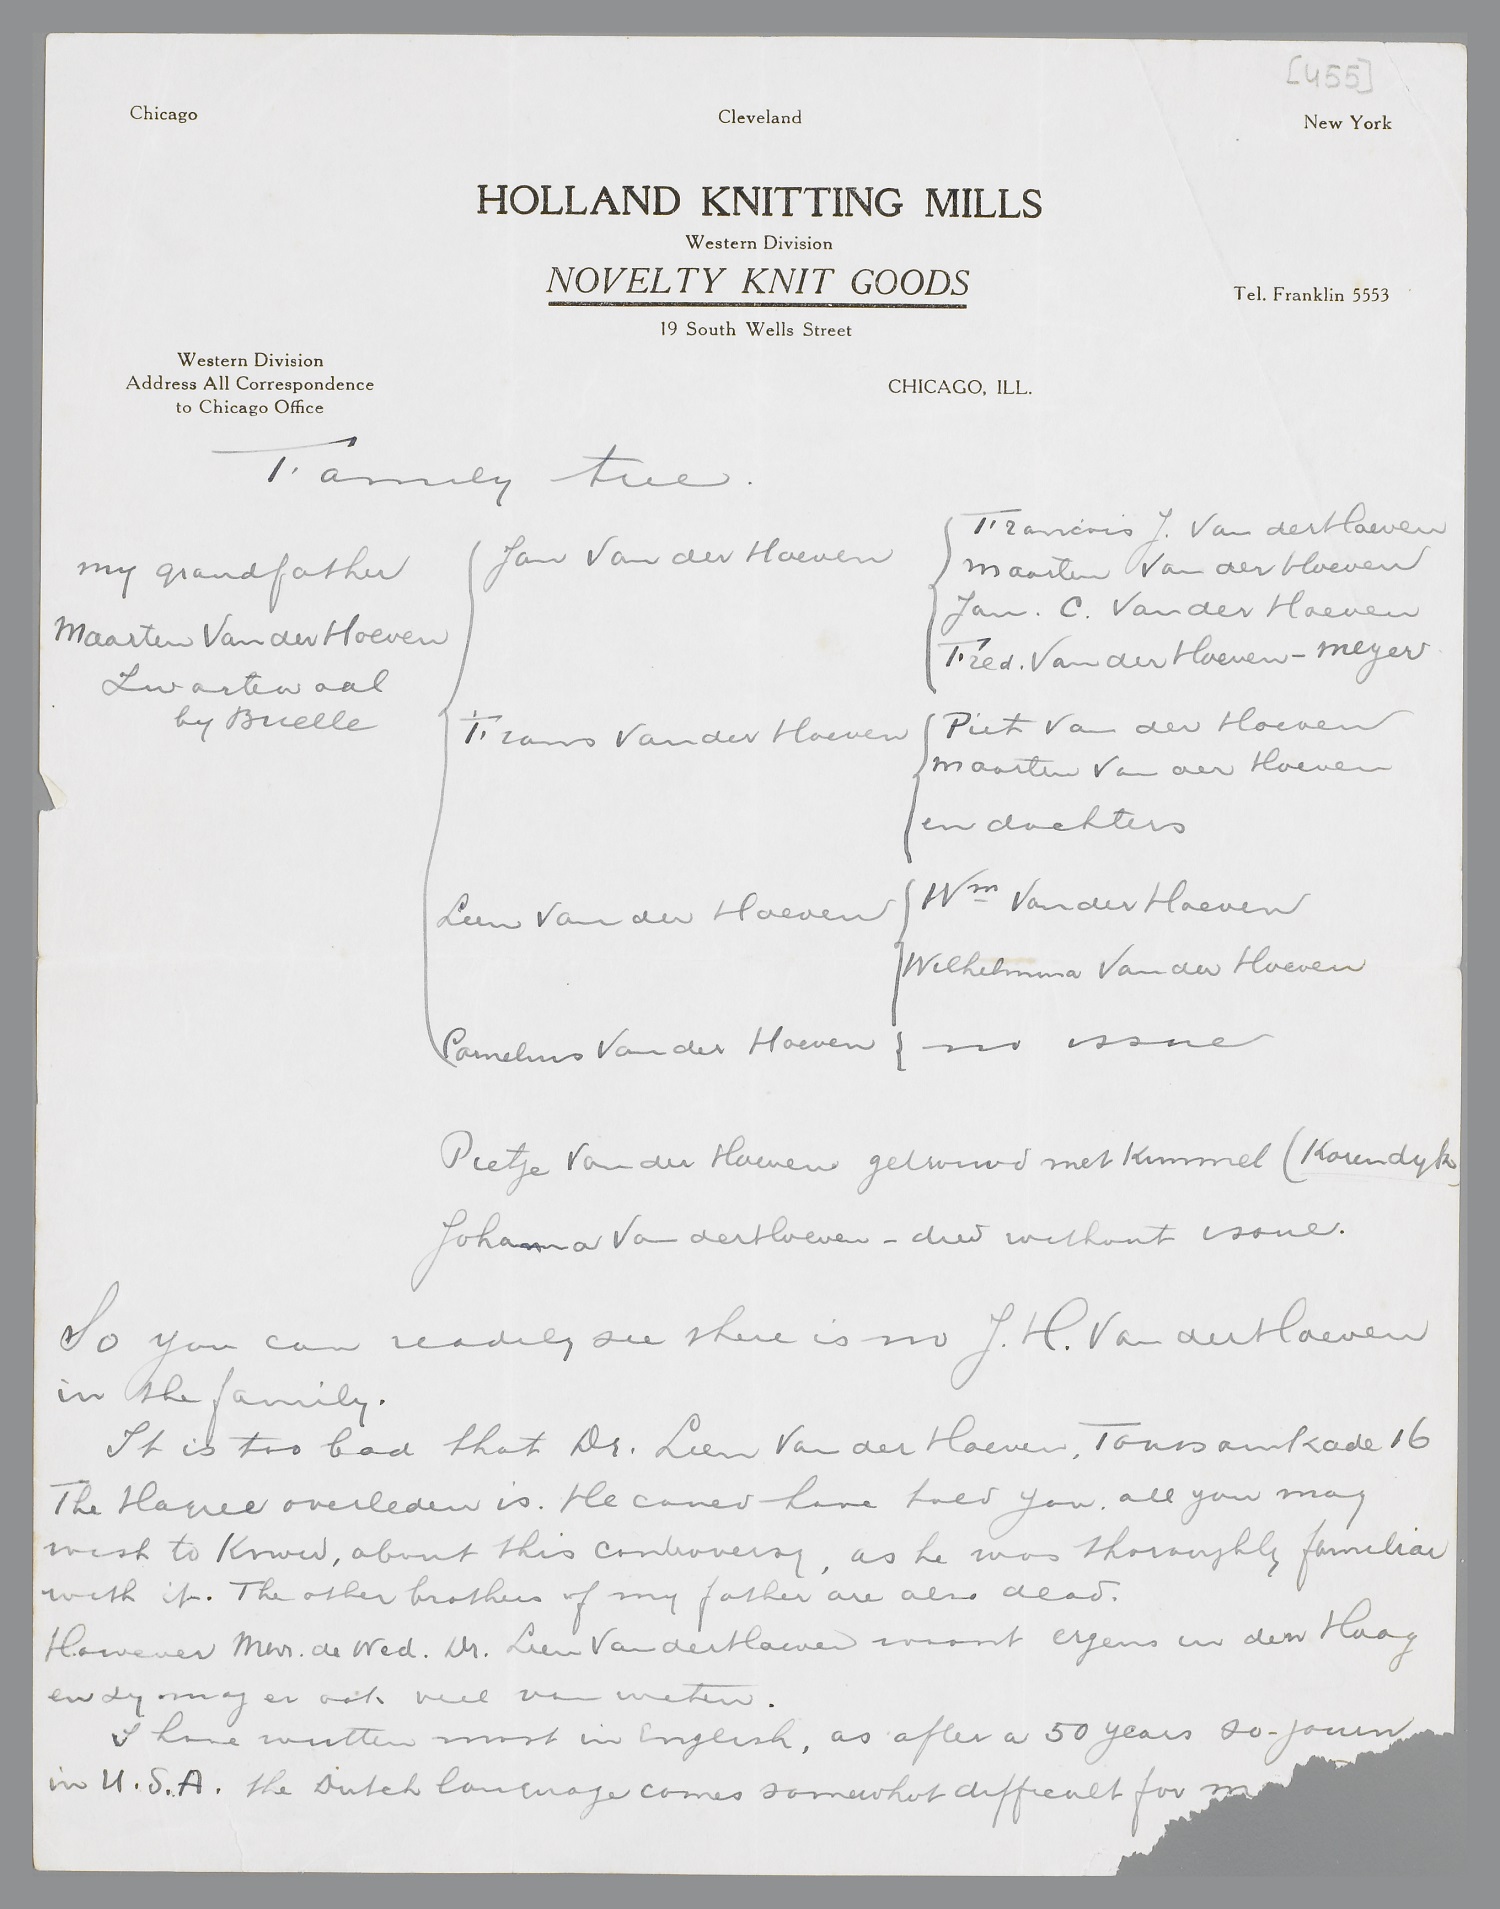 [455]
Chicago Cleveland New York
HOLLAND KNITTING MILLS
Western Division
NOVELTY KNIT GOODS
Tel. Franklin 5553
19 South Wells Street
Western Division
Address All Correspondence
to Chicago Office
CHICAGO, ILL.
Family tree.
my grandfather
Maarten Van der Hoeven
Zwartewaal
by Brielle
Jan Van der Hoeven
Francois J. Van der Hoeven
Maarten Van der Hoeven
Jan. C. Van der Hoeven
Fred. Van der Hoeven - Meyer
Frans Van der Hoeven
Piet Van der Hoeven
Maarten Van der Hoeven
en dochters
Leen Van der Hoeven
Wm Van der Hoeven
Wilhelmina Van der Hoeven
Cornelius Van der Hoeven
no issue
Pietje Van der Hoeven getrouwd met Kimmel (Korendyk)
Johanna Van der Hoeven - died without issue.
So you can readily see there is no J. H. Van der Hoeven
in the family.
It is too bad that Dr. Leen Van der Hoeven, Toussaintkade 16
The Hague overleden is. He coued have toed you all you may
wish to Know, about this controversy, as he was thoroughly familiar
with it. The other brothers of my father are also dead.
However Mevr. de Wed. Dr. Leen Van der Hoeven woont ergens in den Haag
en zy mag er ook veel van weten.
I have written most in English, as after a 50 years so-journ
in U.S.A. the Dutch language comes somewhat difficult for